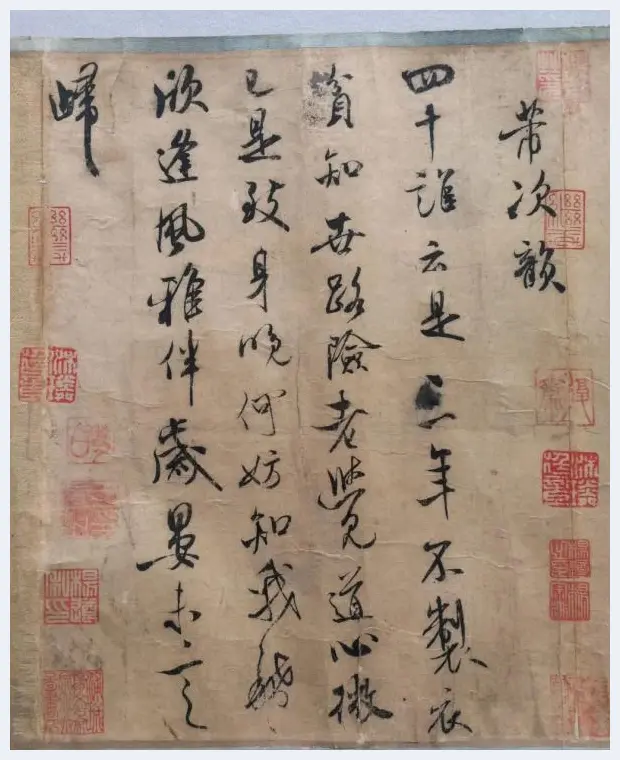 常次韻
四十誰云是三年不製衣
貧知世路險老覺道心微
已是致身晚何妨知我稀
欣逢風雅伴歲晏未言
歸